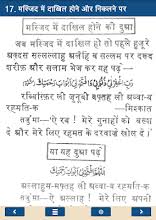 17. मस्जिद में दाखिल होने और निकलने पर
मस्जिद में दाखिल होने की दुआ
जब मस्जिद में दाखिल हो तो पहले हुज़ूरे
अक़दस सल्लल्लाहु अलैहि व सल्लम पर दरूद
शरीफ़ और सलाम भेज कर यह पढ़े—
रब्बिग़्फ़िर ली ज़ुनूबी वफ़्तह ली अब्वा-ब
रहमति-क —मिश्कात
तर्जुमा— 'ऐ रब! मेरे गुनाहों को बख़्श
दे और मेरे लिए रहमत के दरवाज़े खोल दे।'
या यह दुआ पढ़े
अल्लाहुम-मफ़्तह ली अब्वा-ब रहमति-क
तर्जुमा— 'ऐ अल्लाह! मेरे लिए अपनी